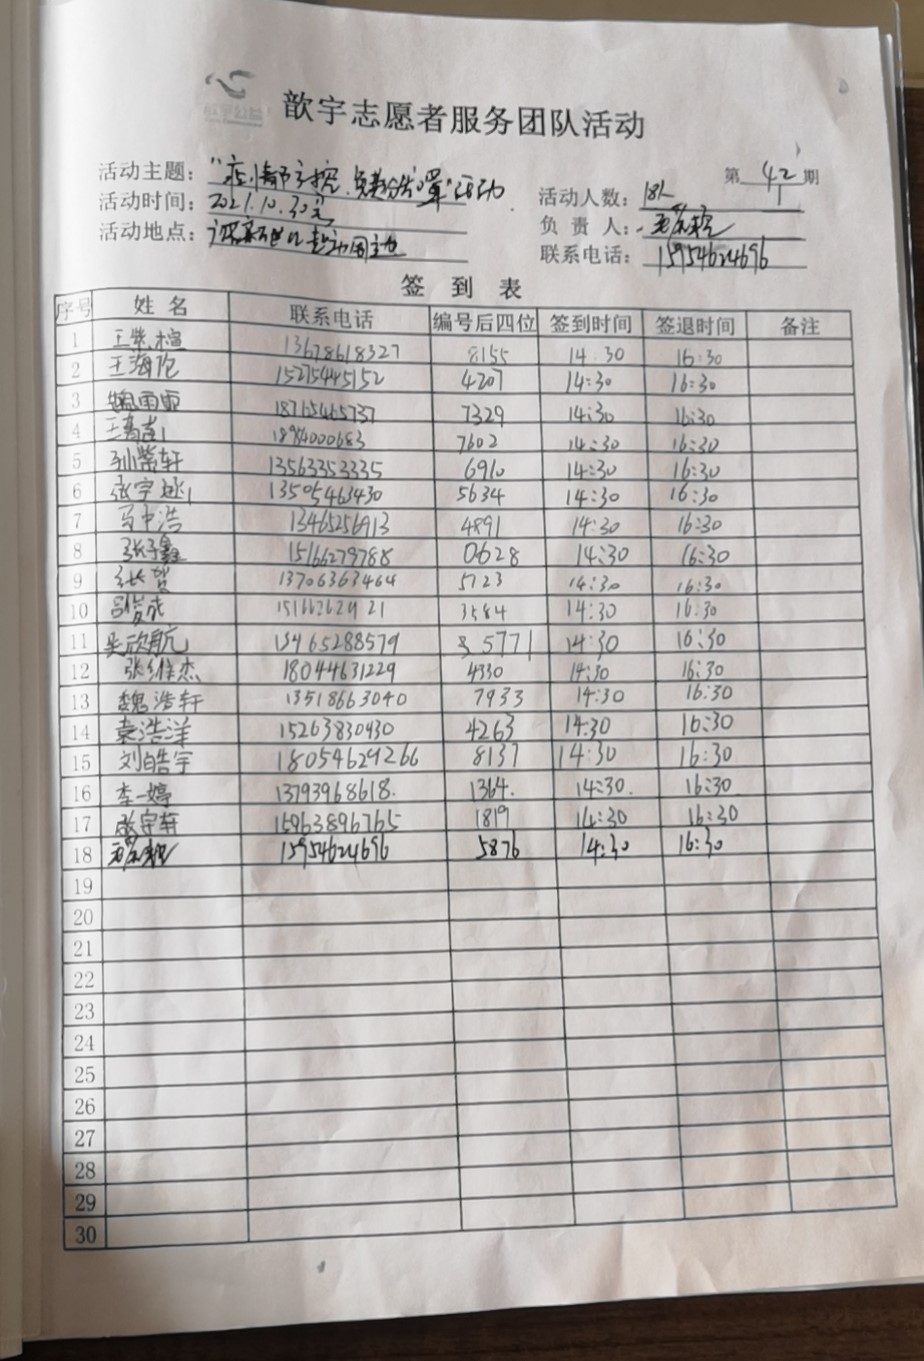 歆宇志愿者服务团队活动
第 42 期
活动主题：“疫情防控,免费分发口罩”活动
活动人数：18人
活动时间：2021.10.30
负责人：
活动地点：
联系电话：15954624696
签到表
序号 姓名 联系电话 编号后四位 签到时间 签退时间 备注
1 13678618327 8155 14:30 16:30
2 王海 15275445152 4207 14:30 16:30
3 魏雨 18765465737 7329 14:30 16:30
4 7602 14:30 16:30
5 孙紫轩 13563353335 6910 14:30 16:30
6 张宇 13505463430 5634 14:30 16:30
7 浩 13465256913 4891 14:30 16:30
8 张子鑫 15166279788 0628 14:30 16:30
9 张贺 13706363464 5723 14:30 16:30
10 3584 14:30 16:30
11 吴欣航 13465288579 5771 14:30 16:30
12 张维杰 18044631229 4330 14:30 16:30
13 魏浩轩 13518663040 7933 14:30 16:30
14 袁浩洋 15263830430 4263 14:30 16:30
15 刘皓宇 18054629266 8137 14:30 16:30
16 李一婷 13793968618. 1364. 14:30. 16:30
17 宇轩 15963896765 1819 14:30 16:30
18 15954624696 5876 14:30 16:30
19
20
21
22
23
24
25
26
27
28
29
30